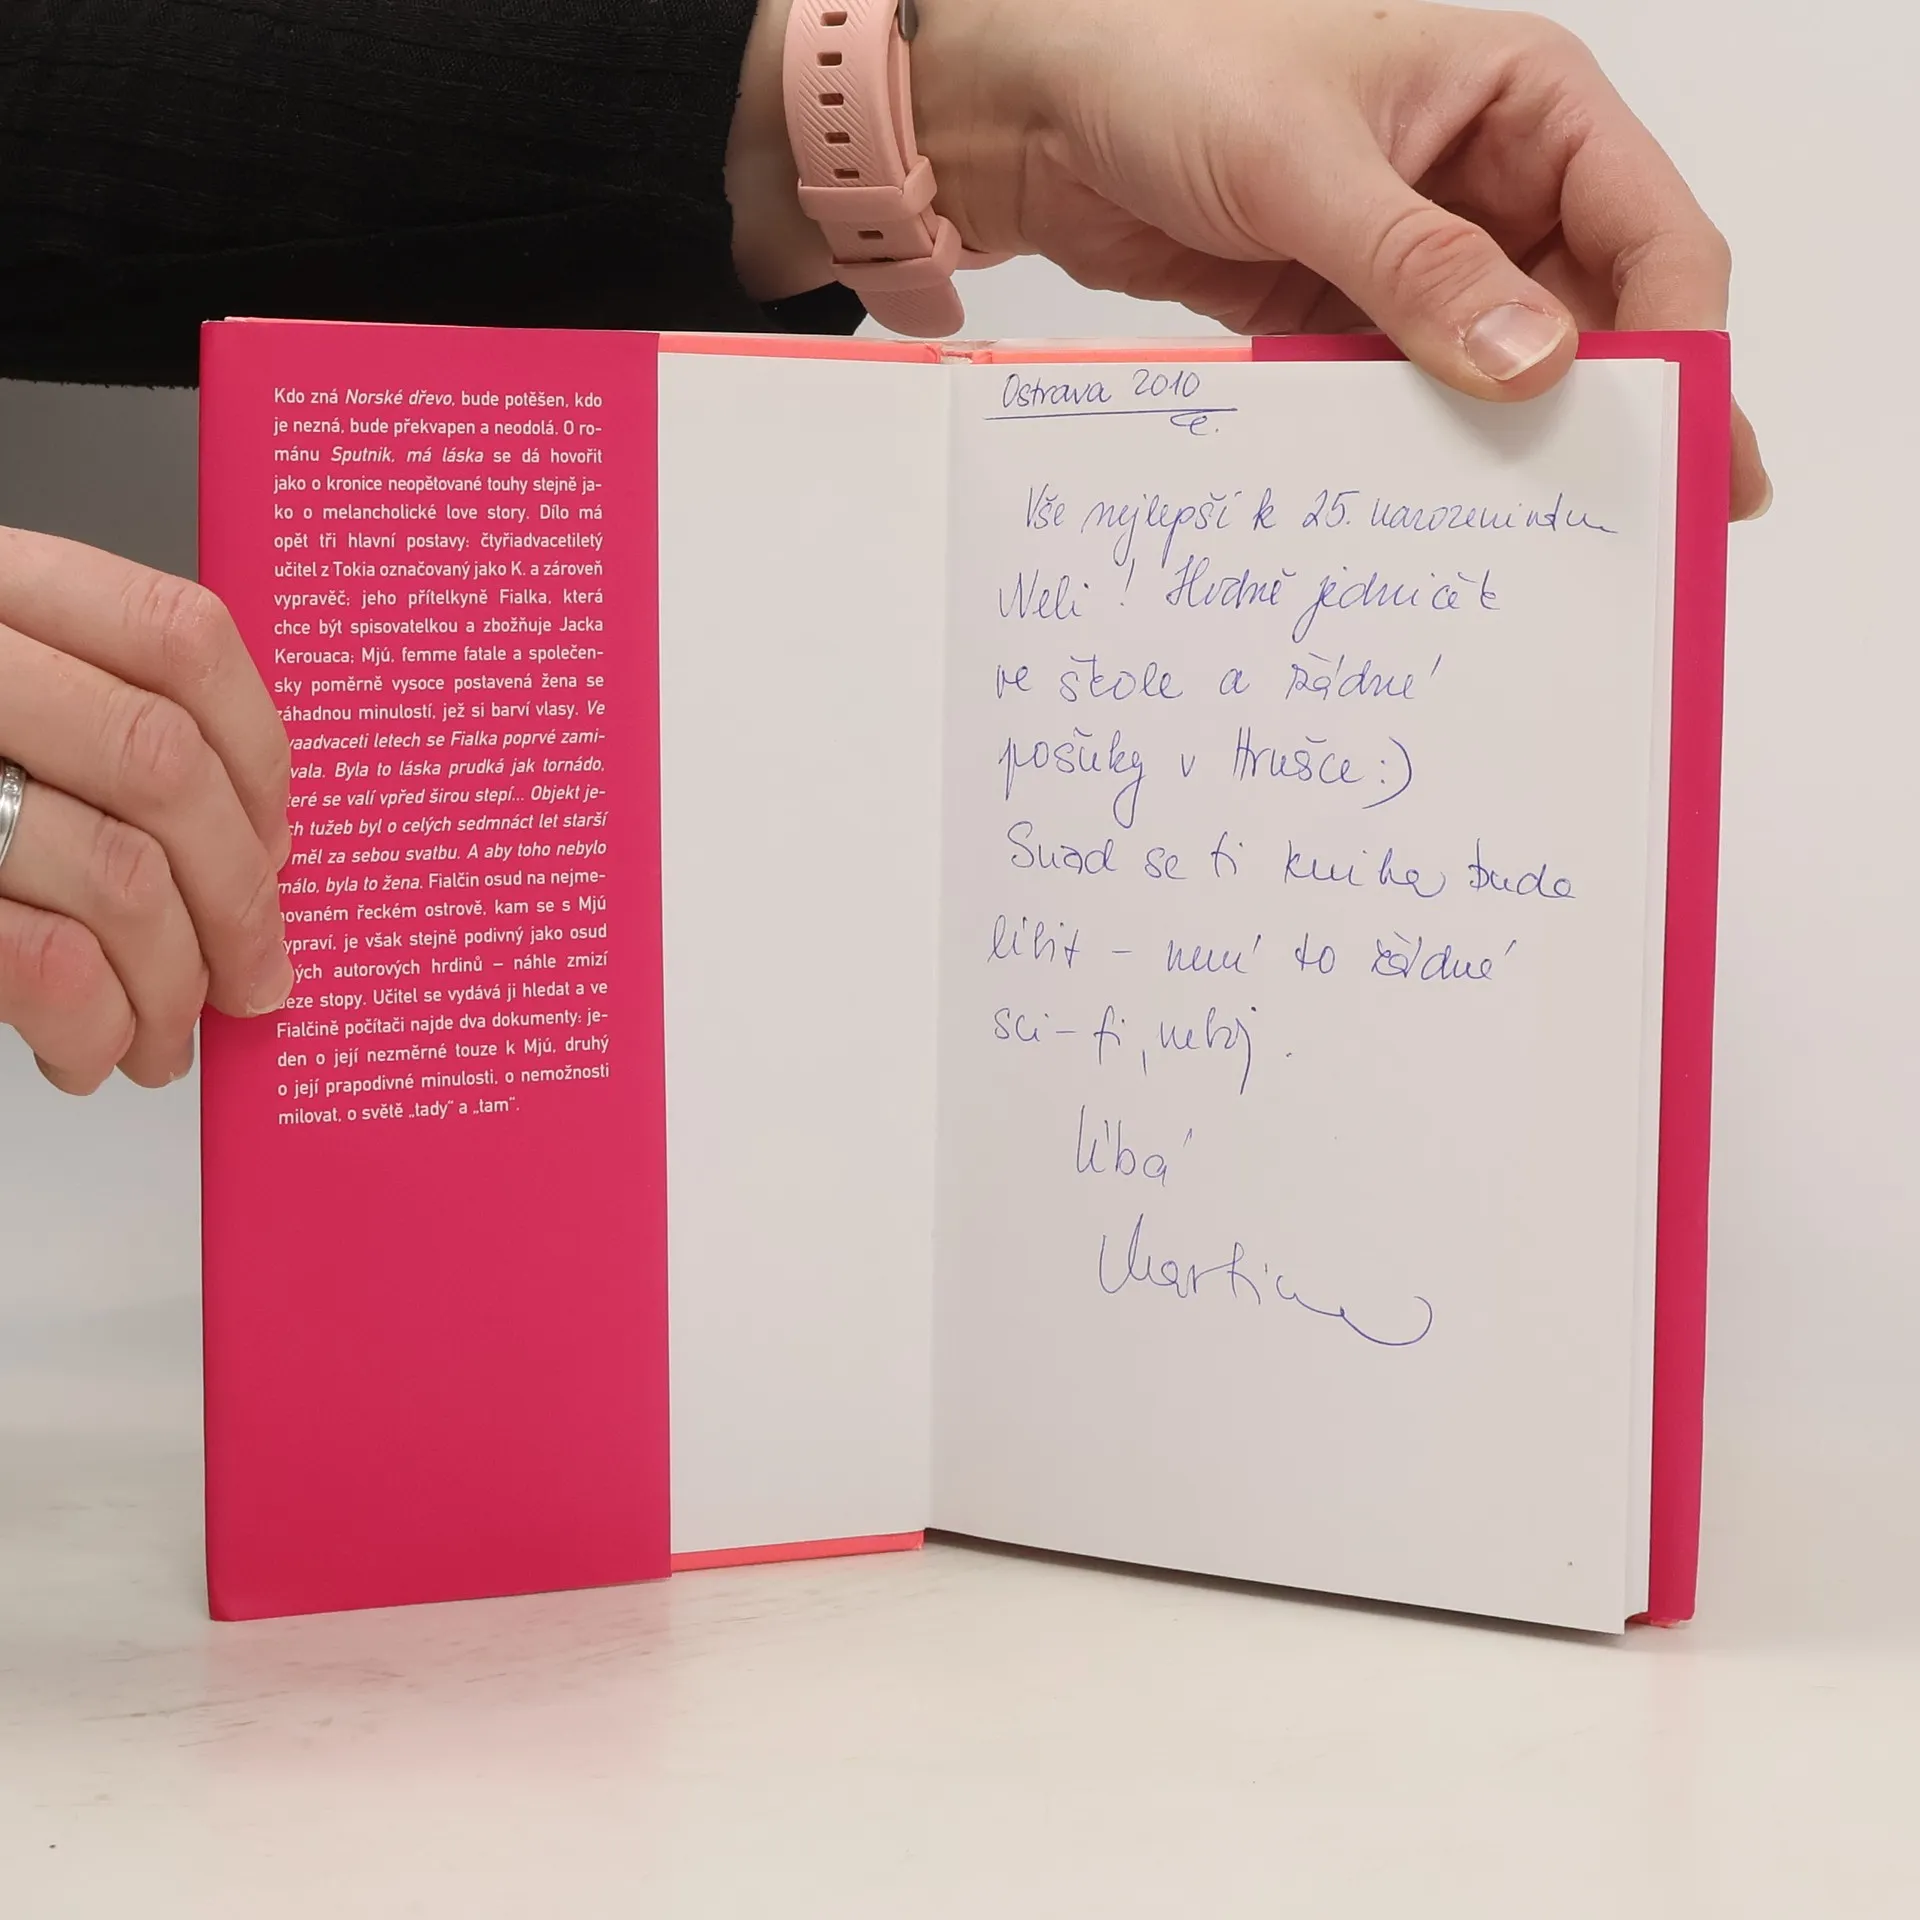 Kdo zná Norské dřevo, bude potěšen, kdo
je nezná, bude překvapen a neodolá. O ro-
mánu Sputnik, má láska se dá hovořit
jako o kronice neopětované touhy stejně ja-
ko o melancholické love story. Dílo má
opět tři hlavní postavy: čtyřiadvacetiletý
učitel z Tokia označovaný jako K. a zároveň
vypravěč; jeho přítelkyně Fialka, která
chce být spisovatelkou a zbožňuje Jacka
Kerouaca; Mjú, femme fatale a společen-
sky poměrně vysoce postavená žena se
záhadnou minulostí, jež si barví vlasy. Ve
vaadvaceti letech se Fialka poprvé zami-
vala. Byla to láska prudká jak tornádo,
teré se valí vpřed širou stepí... Objekt je-
ch tužeb byl o celých sedmnáct let starší
měl za sebou svatbu. A aby toho nebylo
málo, byla to žena. Fialčin osud na nejme-
novaném řeckém ostrově, kam se s Mjú
ypraví, je však stejně podivný jako osud
ných autorových hrdinů – náhle zmizí
beze stopy. Učitel se vydává ji hledat a ve
Fialčině počítači najde dva dokumenty: je-
den o její nezměrné touze k Mjú, druhý
o její prapodivné minulosti, o nemožnosti
milovat, o světě „tady“ a „tam“.
Ostrava 2010
Vše nejlepší k 25. narozeninám
Neli! Hodně jedniček
ve škole a žádné
pošuky v Hrušce :)
Snad se ti kniha bude
líbit – není to žádné
sci-fi, neboj.
líbá
Martina